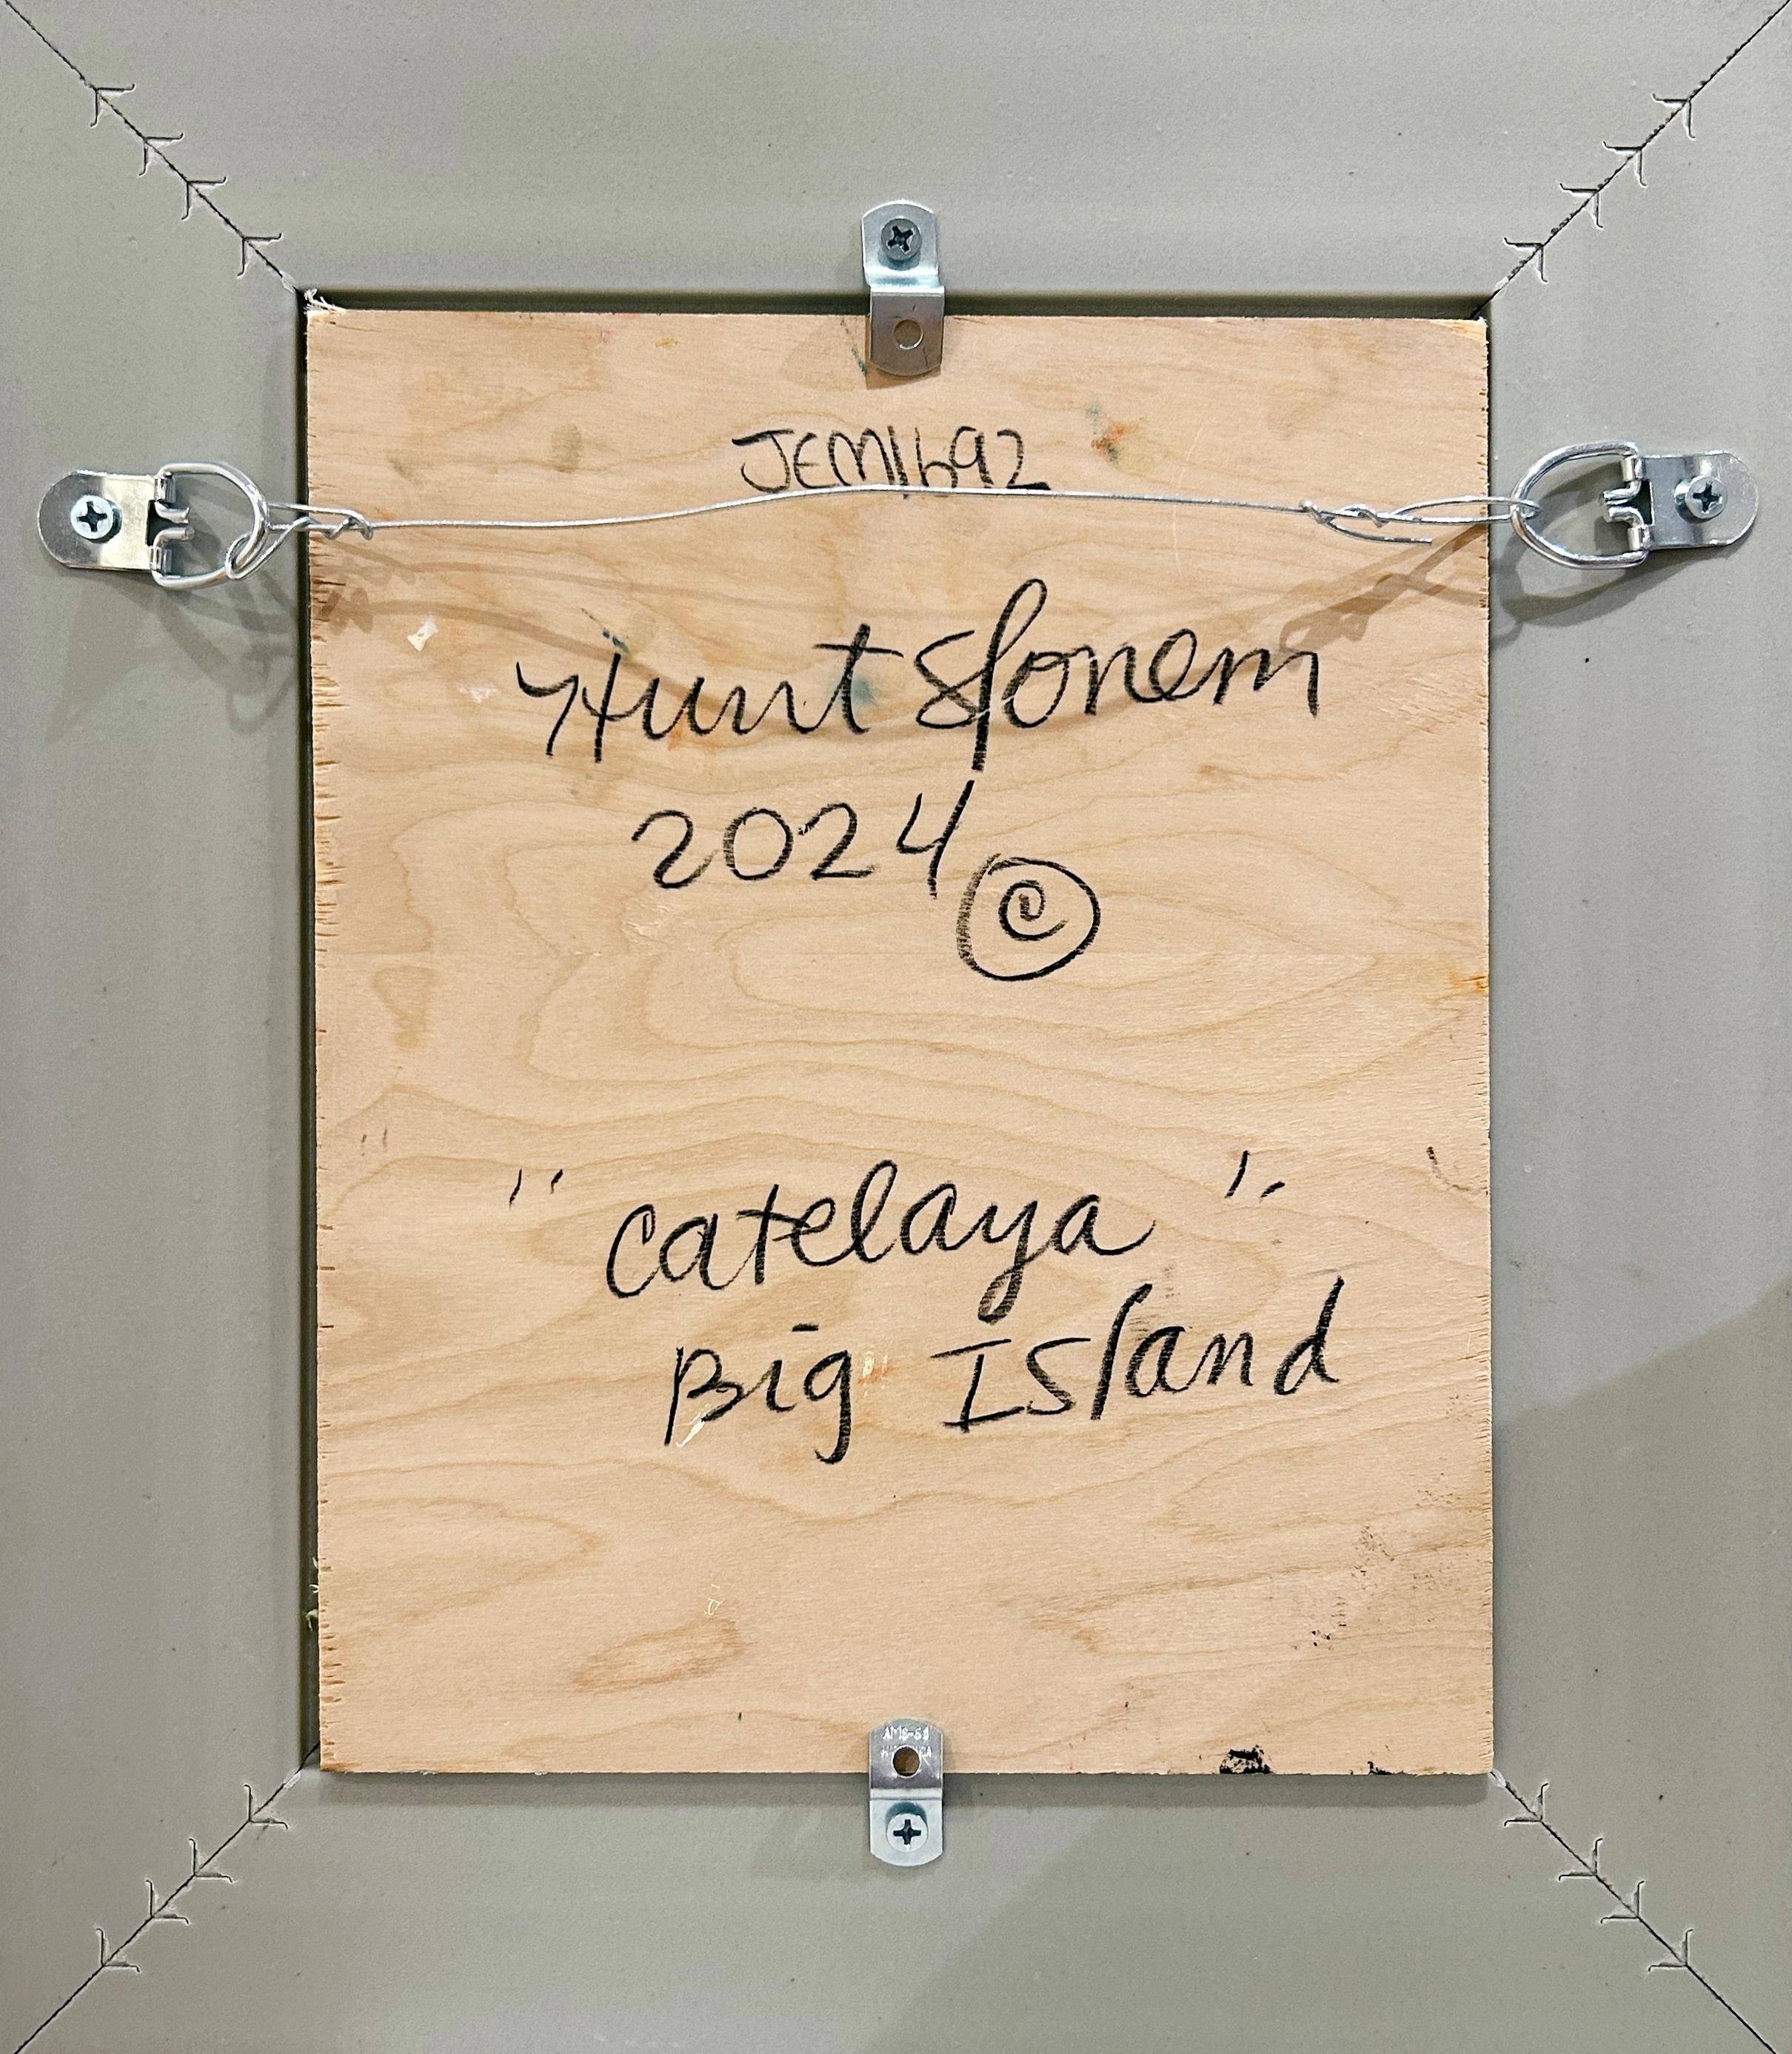 JEM1692
Hunt Slonem
2024 ©
"Catelaya"
Big Island